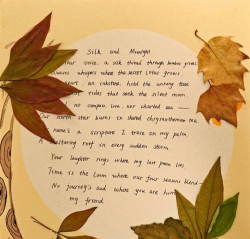 Silk and Moonlight
your voice, a silk thread through bamboo groves
whispers where the secret lotus grows
heart, an inkstone, hold the untold
tides that seek the silent moon.
no compass, love, nor charted sea —
north star burns in shared chrysanthemum tea.
name's a scripture I trace on my palm
A sheltering roof in every sudden storm.
Your laughter rings where my last poem lies
Time is the loom where our four seasons blend —
No journey's sad where you are
my friend